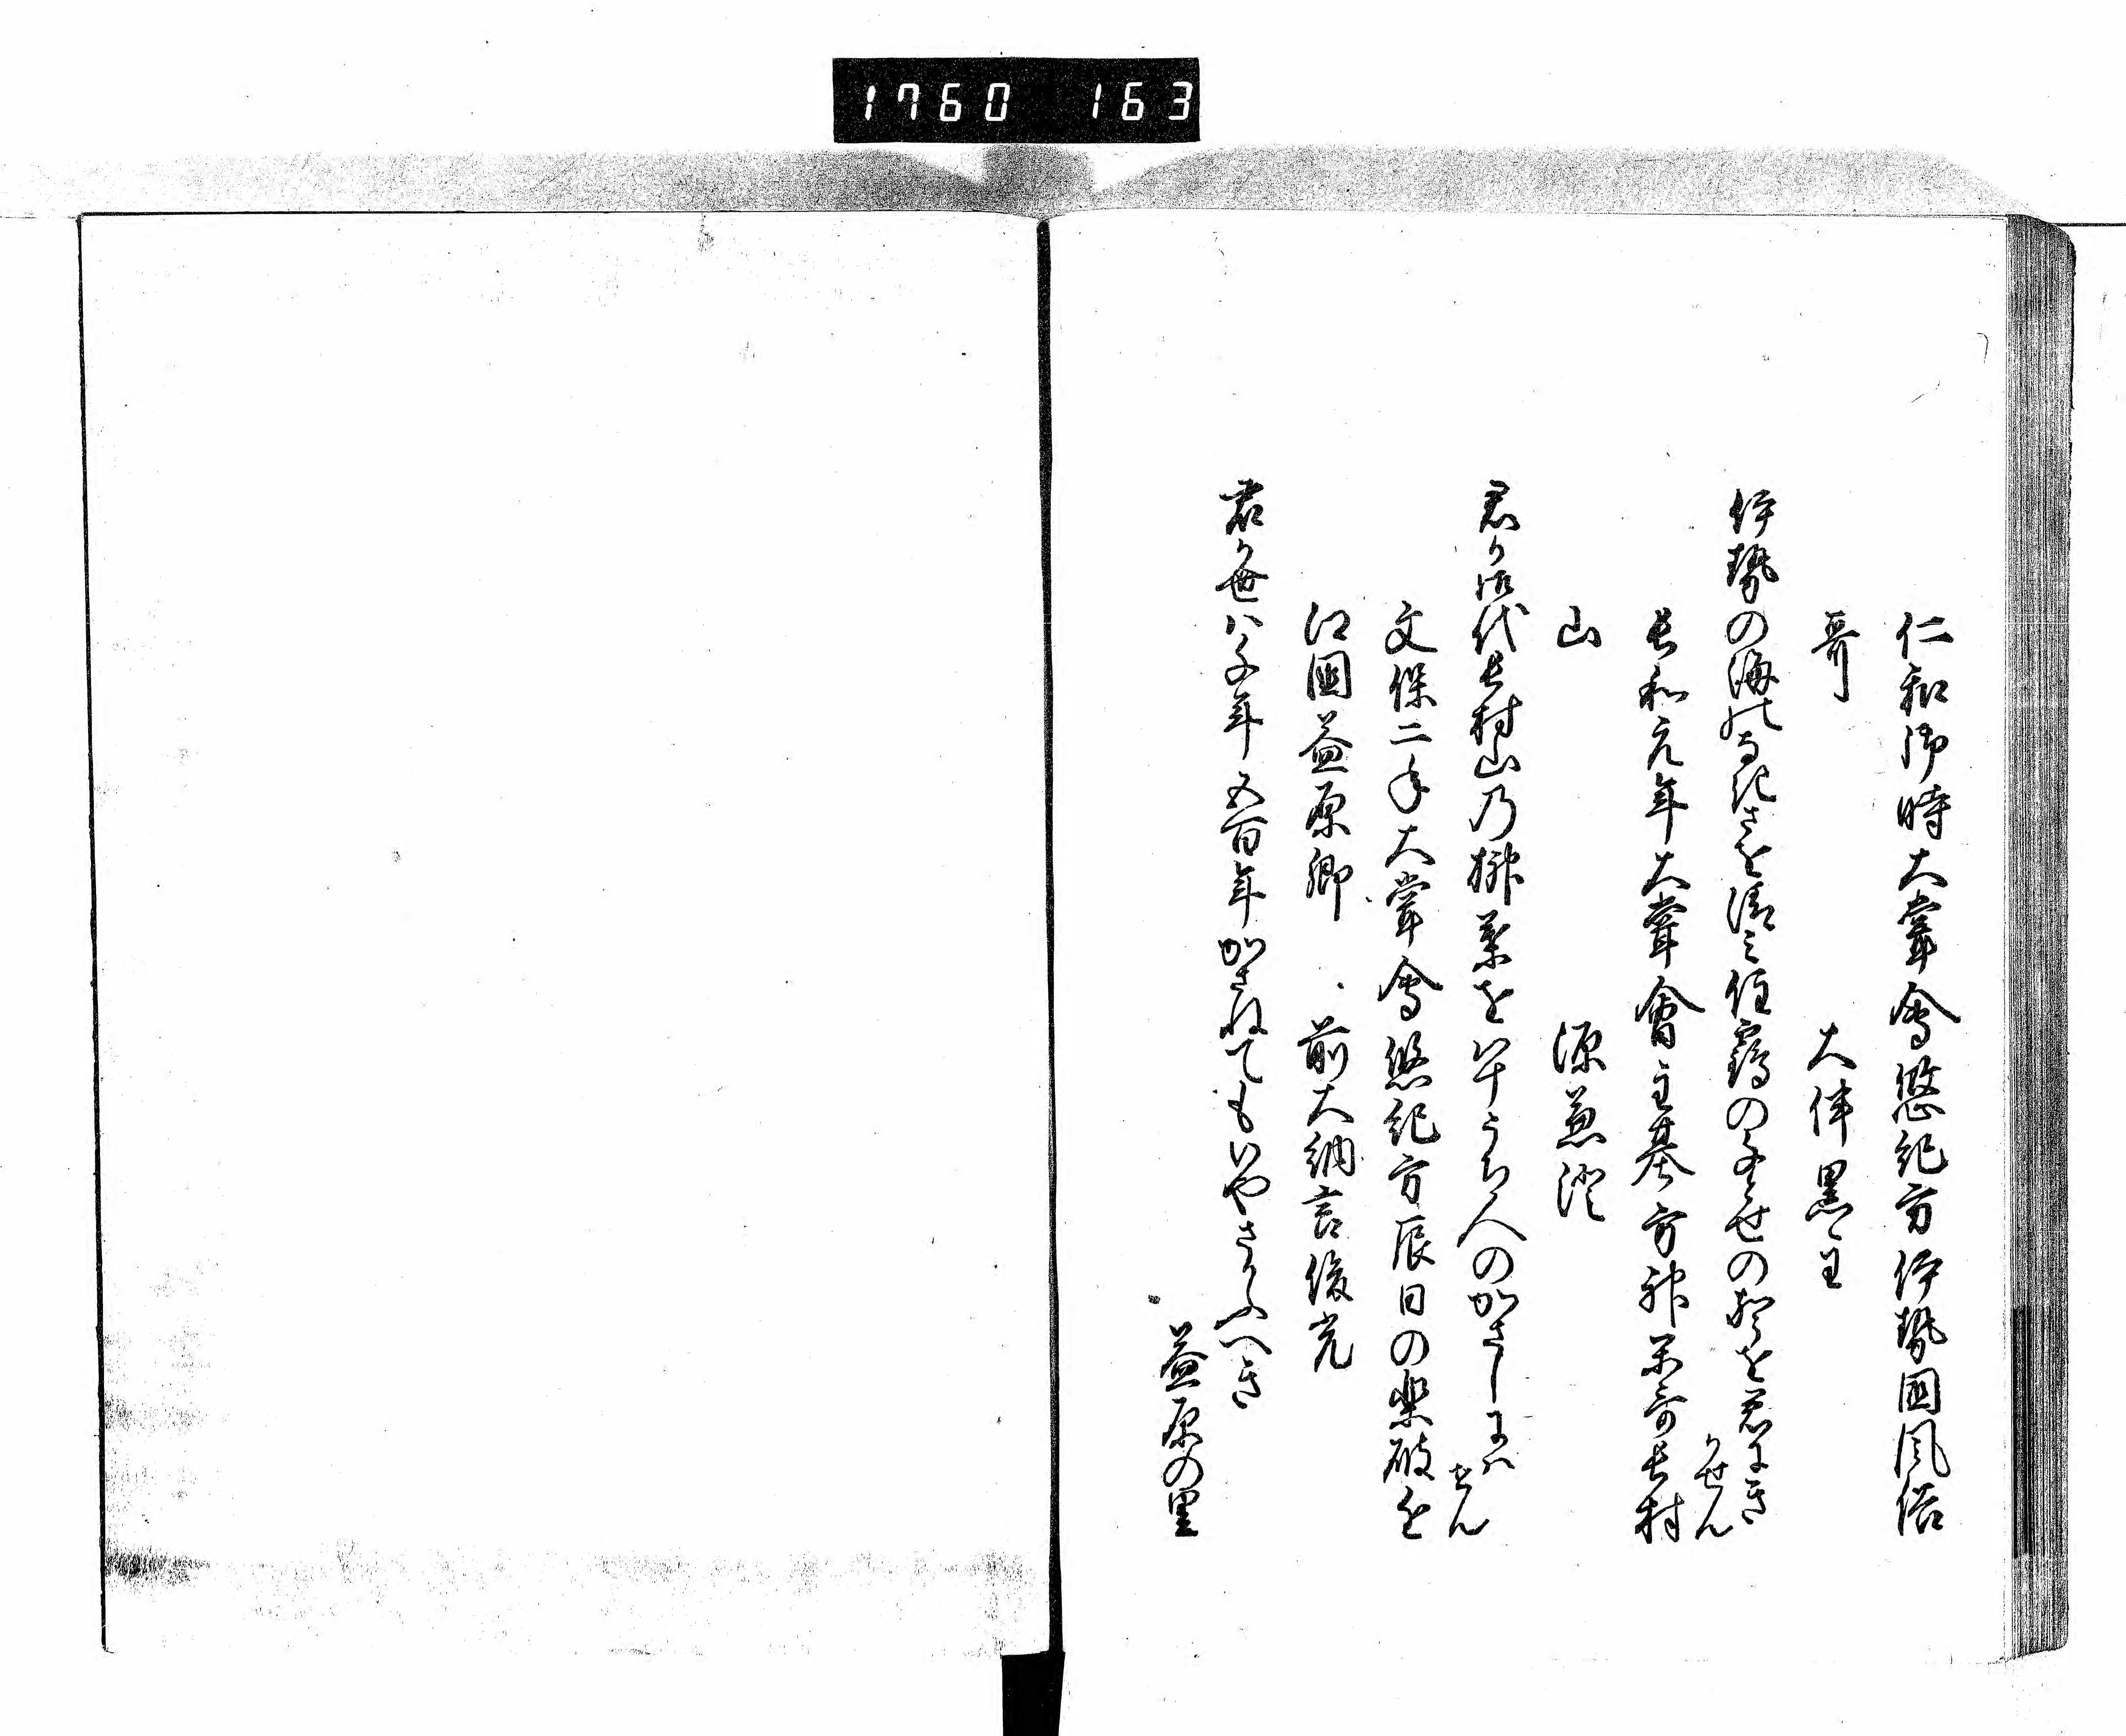 1760 163
仁和御時大嘗會悠紀方伊勢國風俗
哥　大伴黒主
伊勢の海のなきさを清み住鶴の千とせの声を君にき
かせん
長和元年大嘗會主基方神楽哥長村
山　源兼澄
君か御代長村山乃榊葉をやそうち人のかさしにハ
せん
文保二年大嘗會悠紀方辰日の楽破を
江國益原郷　前大納言俊光
君か世ハ千年五百年かさねてもいやさかふへき
益原の里